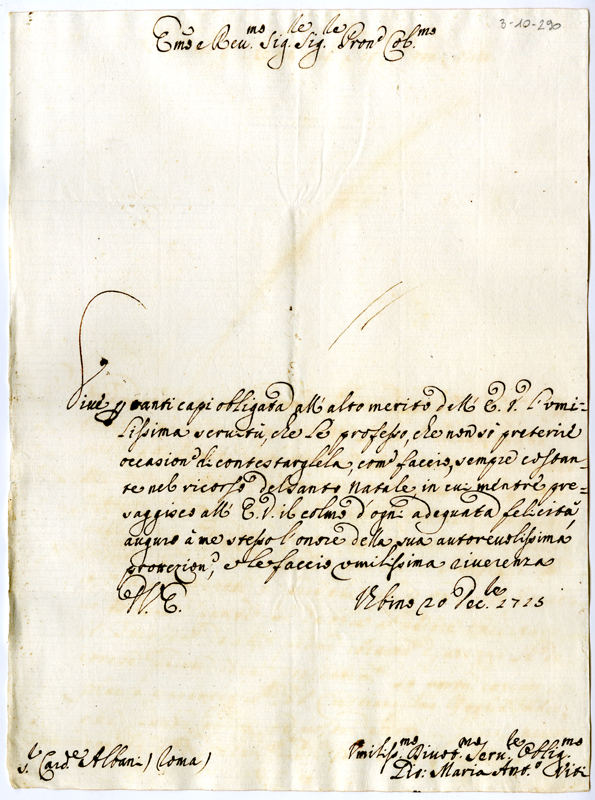 3-10-290
Em.o e Reu.mo Sig.le Sig.le Pron.e Col.mo
Viue p tanti capi obligata all' alto merito dell' E. V. l'vmi-
lissima seruitù, che le professo, che non sò preterire
occasione di contestarglela, come faccio, sempre costan-
te nel ricorso del santo Natale, in cui mentre pre-
saggisco all' E. V. il colmo d'ogni adeguata felicità,
auguro à me stesso l'onore della sua autoreuolissima
protezione, e le faccio vmilissima riuerenza
D. V. E.
Vrbino 20 Dec.le 1725
S.r Card.le Albani (Roma)
Vmiliss.mo Diuot.mo Seru.le Oblig.mo
Maria Ant.o Viti